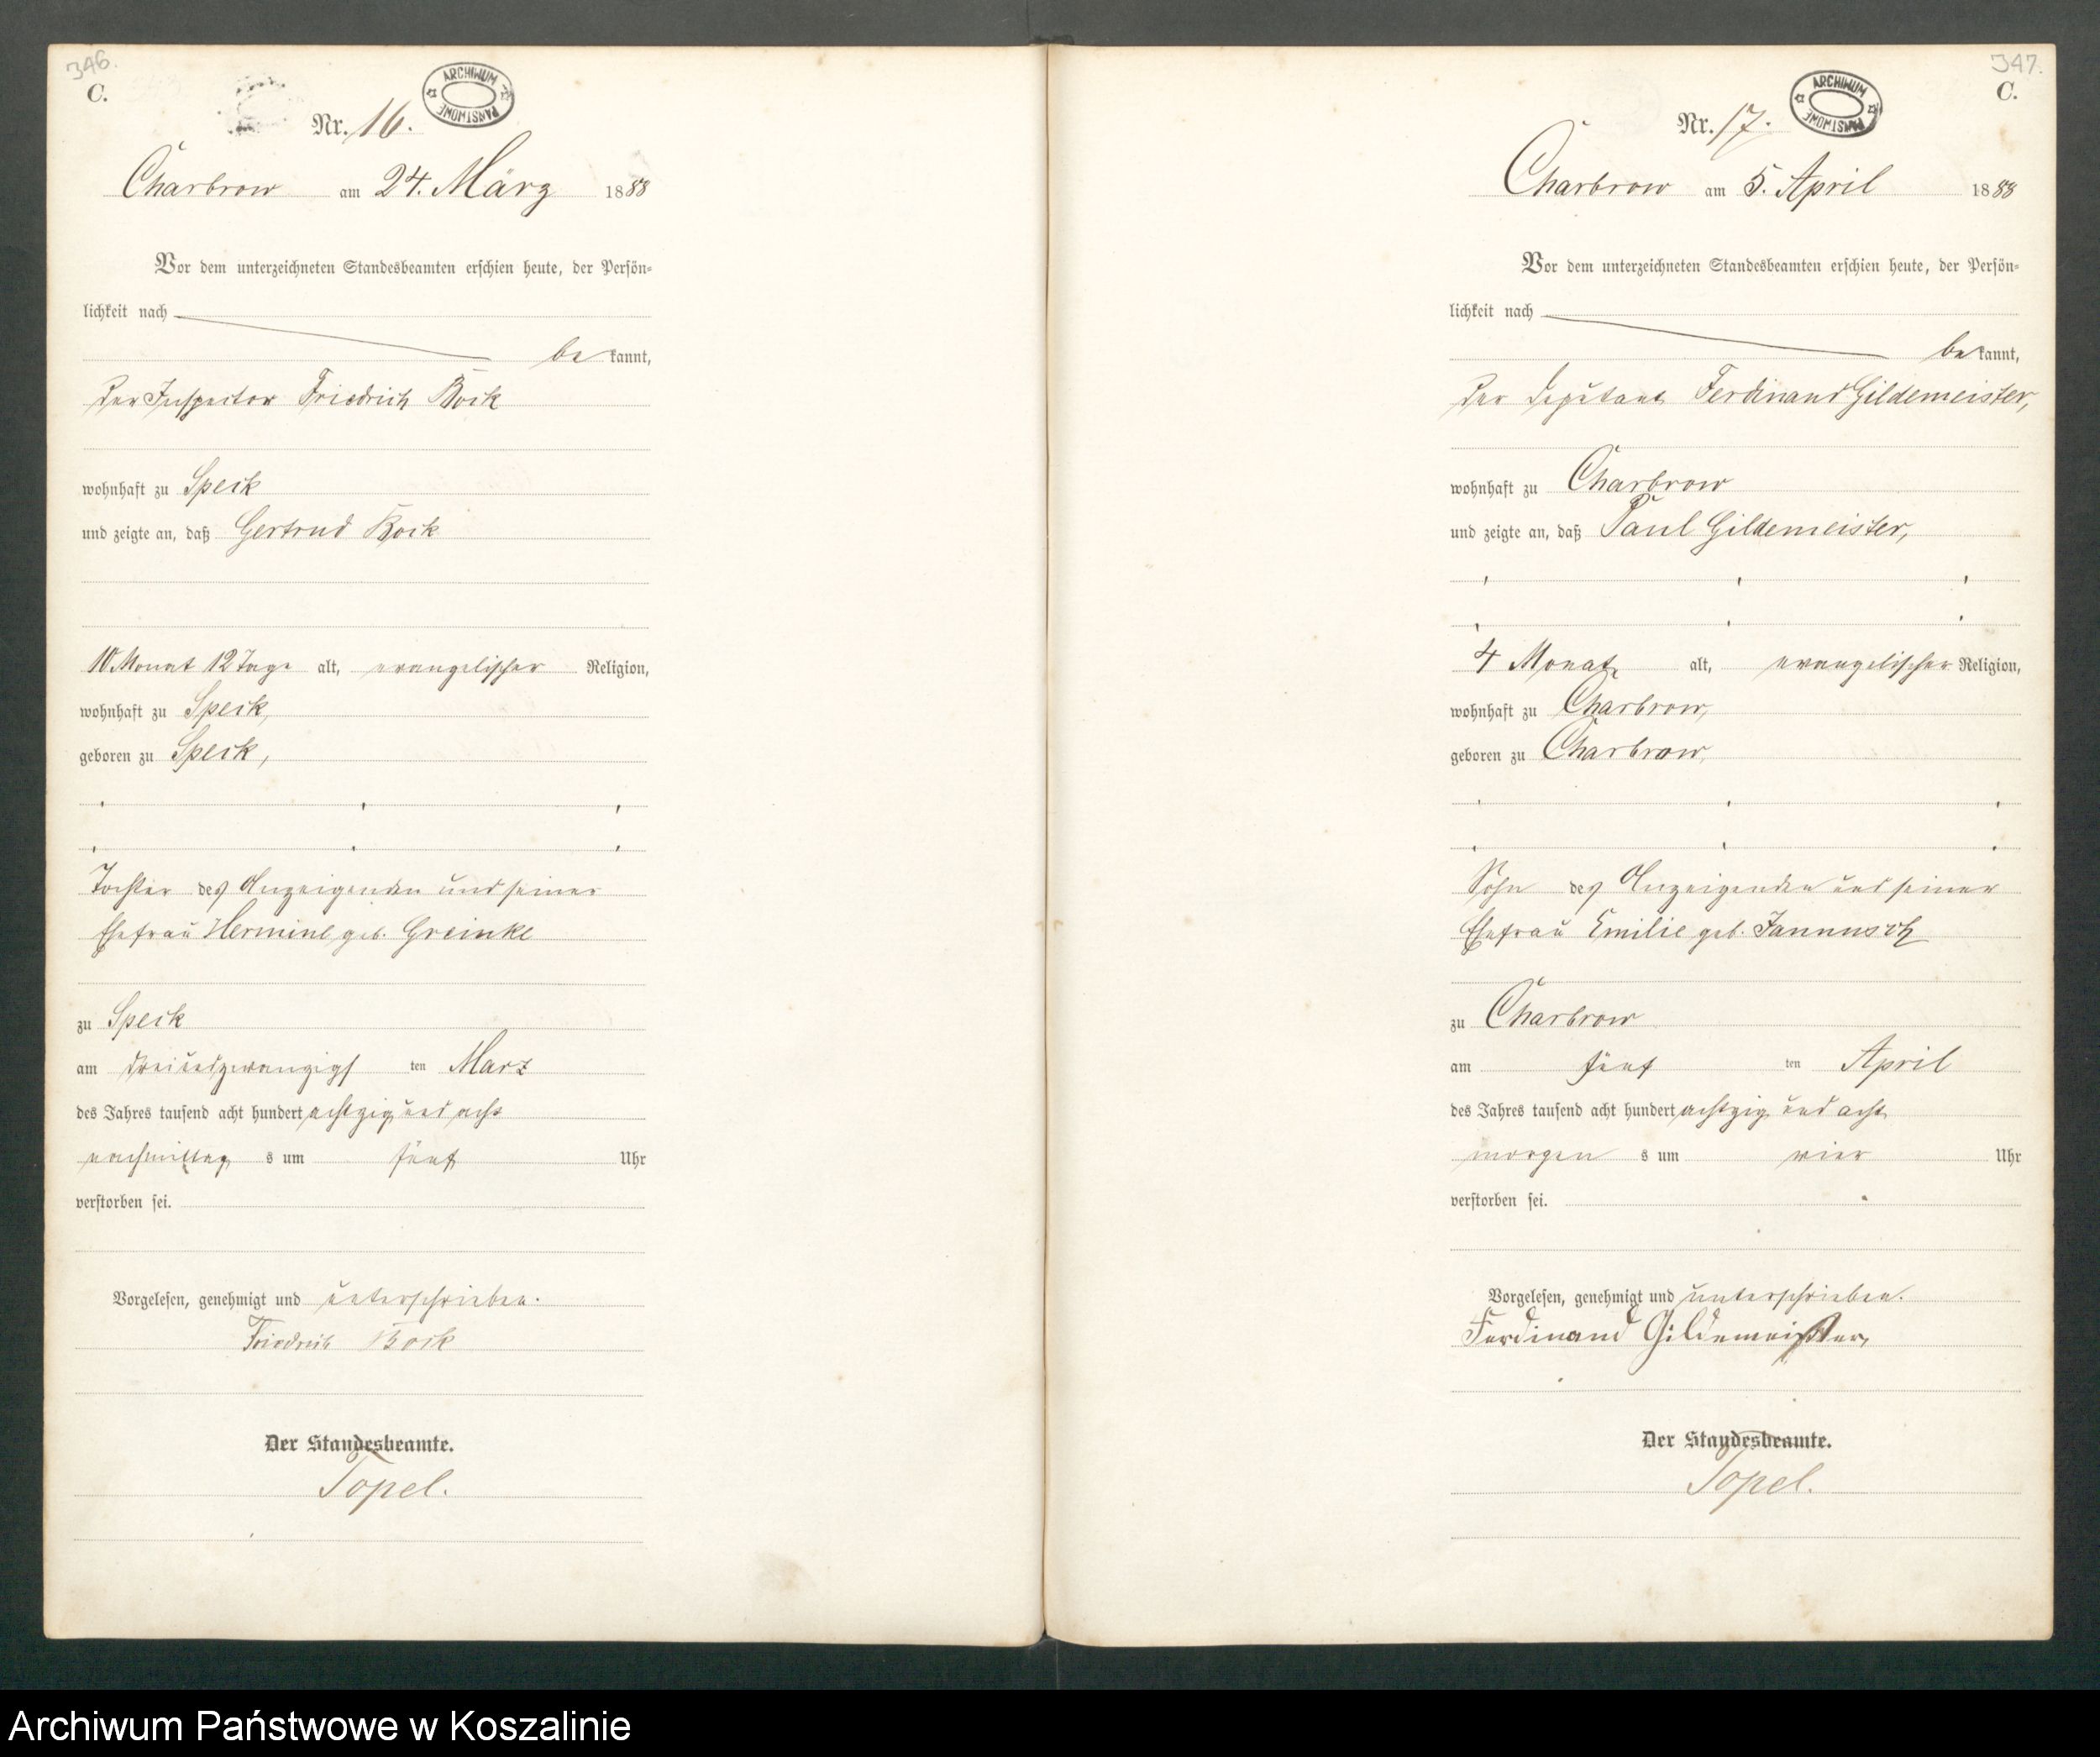 346.
C.
ARCHIWUM PAŃSTWOWE
Nr. 16.
Charbrow am 24. März 1888
Vor dem unterzeichneten Standesbeamten erschien heute, der Persön-
lichkeit nach
be kannt,
der Inspector Friedrich Bock
wohnhaft zu Speck
und zeigte an, daß Gertrud Bock
10 Monat 12 Tage alt, evangelischer Religion,
wohnhaft zu Speck,
geboren zu Speck,
Tochter des Anzeigenden und seiner
Ehefrau Hermine geb. Greinke
zu Speck
am dreiundzwanzigs ten Marz
des Jahres tausend acht hundert achtzig und acht
nachmittag s um fünf Uhr
verstorben sei.
Vorgelesen, genehmigt und unterschrieben.
Friedrich Bock
Der Standesbeamte.
Topel.
347.
C.
ARCHIWUM PAŃSTWOWE
Nr. 17.
Charbrow am 5. April 1888
Vor dem unterzeichneten Standesbeamten erschien heute, der Persön-
lichkeit nach
be kannt,
der Deputant Ferdinand Gildemeister,
wohnhaft zu Charbrow
und zeigte an, daß Paul Gildemeister,
4 Monat alt, evangelischer Religion,
wohnhaft zu Charbrow,
geboren zu Charbrow,
Sohn des Anzeigenden und seiner
Ehefrau Emilie geb. Jannusch
zu Charbrow
am fünf ten April
des Jahres tausend acht hundert achtzig und acht
morgen s um vier Uhr
verstorben sei.
Vorgelesen, genehmigt und unterschrieben.
Ferdinand Gildemeister,
Der Standesbeamte.
Topel.
Archiwum Państwowe w Koszalinie